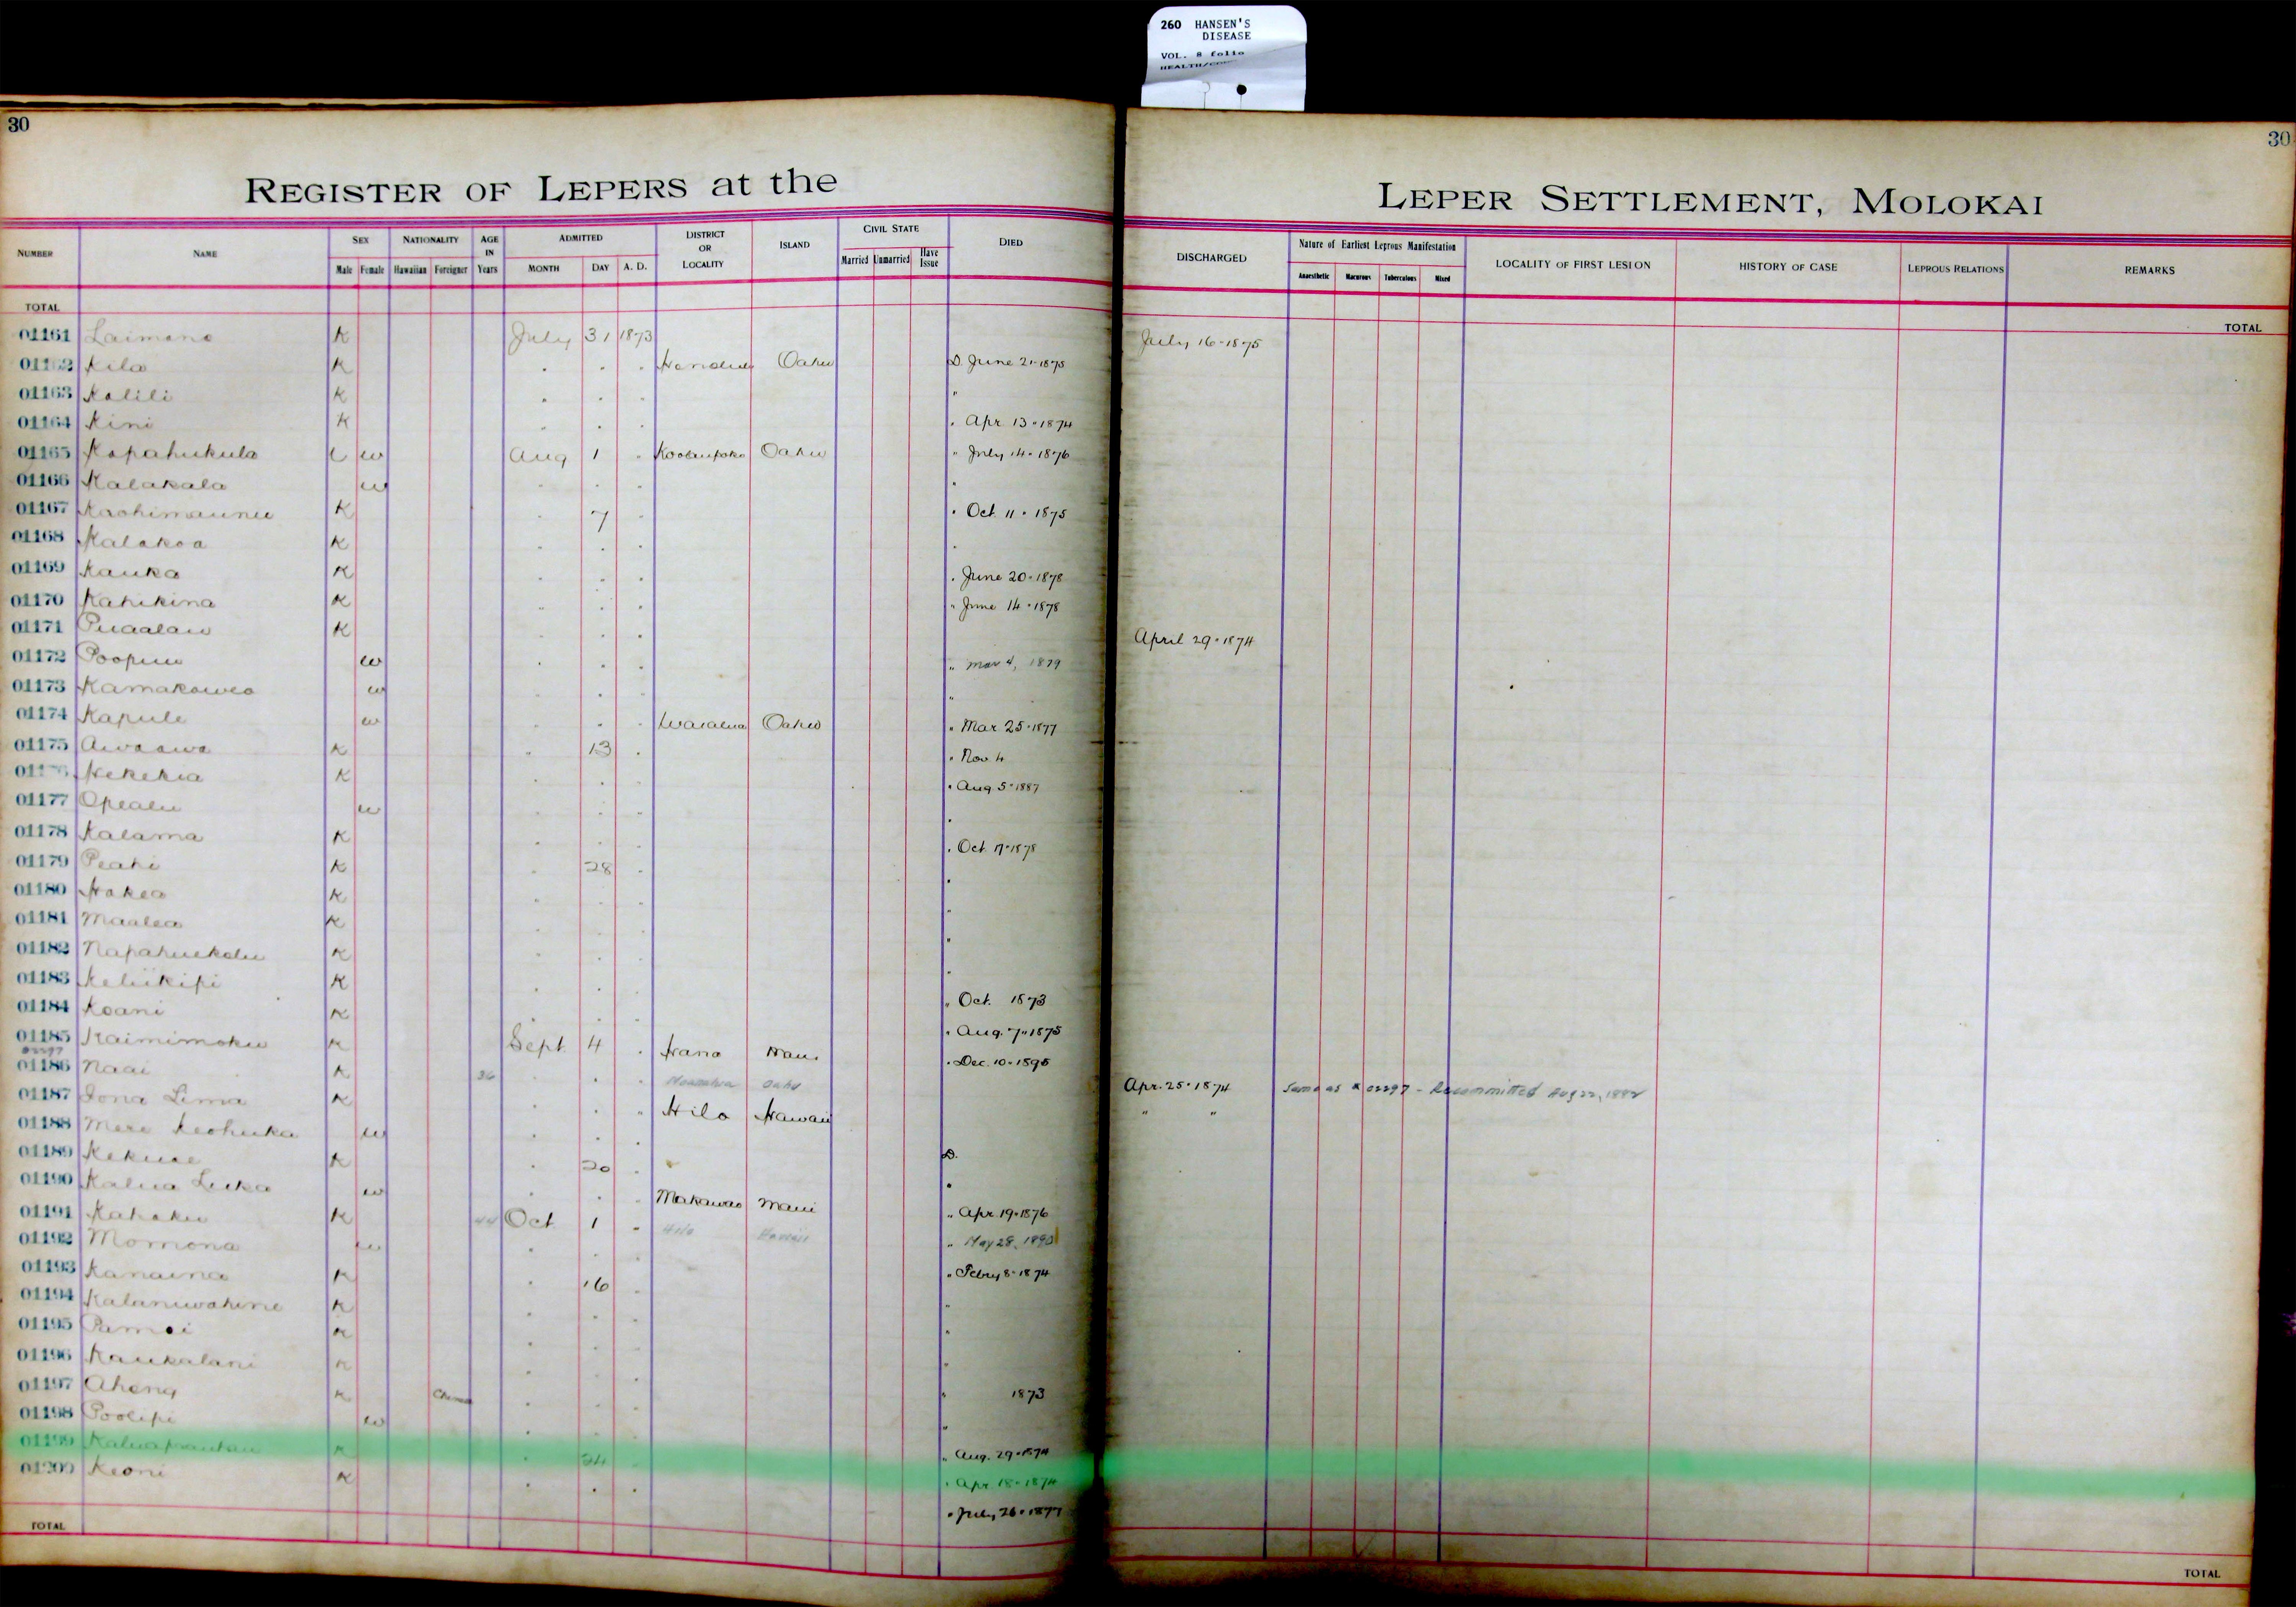 260 HANSEN'S
DISEASE
VOL. 8 folio
30
30
REGISTER OF LEPERS at the LEPER SETTLEMENT, MOLOKAI
NUMBER NAME SEX Male Female NATIONALITY Hawaiian Foreigner AGE IN Years ADMITTED MONTH DAY A. D. DISTRICT OR LOCALITY ISLAND CIVIL STATE Married Unmarried Have Issue DIED DISCHARGED Nature of Earliest Leprous Manifestation Anaesthetic Macurous Tuberculous Mixed LOCALITY OF FIRST LESION HISTORY OF CASE LEPROUS RELATIONS REMARKS
TOTAL TOTAL
01161 Laimana K July 31 1873 July 16-1875
01162 Kila K " " " Honolulu Oahu D. June 21-1875
01163 Kalili K " " " "
01164 Kini K " " " " Apr. 13-1874
01165 Kapahukula w Aug 1 " Koolaupoko Oahu " July 14-1876
01166 Kalakala w " " " "
01167 Kaohimaunu K " 7 " " Oct. 11-1875
01168 Kalakoa K " " " "
01169 Kauka K " " " " June 20-1878
01170 Kahikina K " " " " June 14-1878
01171 Puaalau K " " " April 29-1874
01172 Poopuu w " " " " Mar 4, 1879
01173 Kamakawea w " " " "
01174 Kapule w " " " Waialua Oahu " Mar. 25-1877
01175 Awaawa K " 13 " " Nov. 4
Kekekia K " " " " Aug 5-1887
01177 Opealu w " " " "
01178 Kalama K " " " " Oct. 17-1878
01179 Peahi K " 28 " "
01180 Hakea K " " " "
01181 Maalea K " " " "
01182 Napahuekolu K " " " "
01183 Keliikipi K " " " " Oct. 1873
01184 Koani K " " " " Aug. 7-1875
01185 Kaimimoku K Sept. 4 " Hana Maui " Dec. 10-1895
01186 Naai K 36 " " " Oahu Apr. 25-1874 Same as # 02297 - Recommitted Aug 22, 1882
01187 Iona Lima K " " " Hilo Hawaii " "
01188 Mere Keohuka w " " "
01189 Kekuae K " 20 " D.
01190 Kalua Luka w " " " Makawao Maui "
01191 Kahaku K 44 Oct 1 " Hilo Hawaii " Apr. 19-1876
01192 Momona w " " " " May 28, 1890
01193 Kanaina K " 16 " " Febry 8-1874
01194 Kalaniwahine K " " " "
01195 K " " " "
01196 Kaukalani K " " " "
01197 Aheng K China " " " " 1873
01198 Poolipi w " " " "
01199 K " 24 " " Aug. 29-1874
01200 Keoni K " " " " Apr 18-1874
" July 26-1877
TOTAL TOTAL